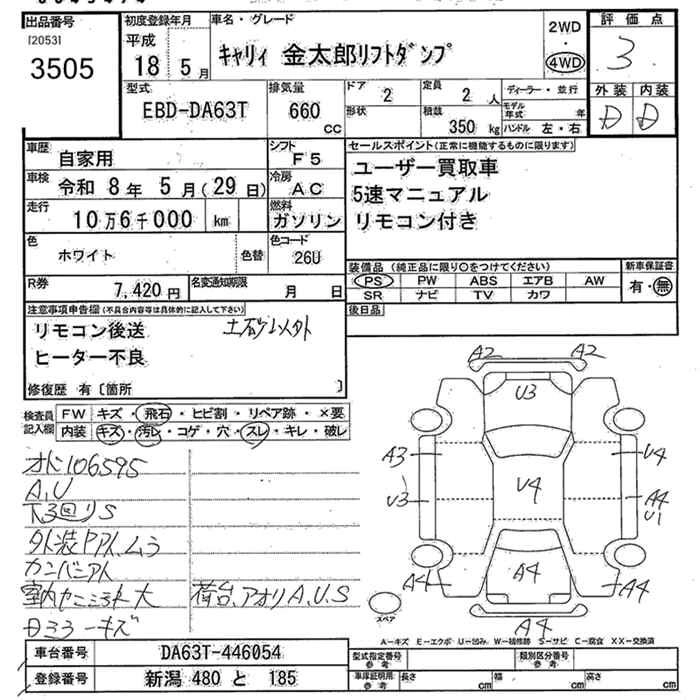 出品番号
[2053]
3505
初度登録年月
平成
18 5 月
車名・グレード
キャリィ 金太郎リフトダンプ
2WD
・
4WD
評価点
3
外装 内装
D D
型式
EBD-DA63T
排気量
660
cc
ドア
2
定員
2 人
形状
積載
350 kg
ディーラー・並行
モデル年式 年
ハンドル 左・右
車歴
自家用
シフト
F5
車検
令和 8年 5月(29日)
冷房
AC
走行
10万6千000 km
燃料
ガソリン
色
ホワイト
色替
色コード
26U
R券
7,420円
名変通知期限
月 日
セールスポイント(正常に機能するものに限ります)
ユーザー買取車
5速マニュアル
リモコン付き
装備品 (純正品に限り○をつけてください)
新車保証書
PS PW ABS エアB AW
有・無
SR ナビ TV カワ
後日品
注意事項申告欄(不具合内容等は具体的に記入して下さい)
リモコン後送 土砂以外
ヒーター不良
修復歴 有〔箇所 〕
検査員記入欄
FW キズ・飛石・ヒビ割・リペア跡・×要
内装 キズ・汚レ・コゲ・穴・スレ・キレ・破レ
オド106595
A,U
下廻りS
外装PPAト,ムラ
室内セミミ汚れ大
荷台、アオリA,U,S
Dミラーキズ
A2 A2
U3
A3 U4
U3 U4 A4
U1
A4 A4 A4
スペア
A4
A-キズ E-エクボ U-凹み W-補修跡 S-サビ C-腐食 XX-交換済
車台番号 DA63T-446054
登録番号 新潟 480 と 185
型式指定番号
参考
類別区分番号
参考
車庫証明用
参考
長さ cm
幅 cm
高さ cm